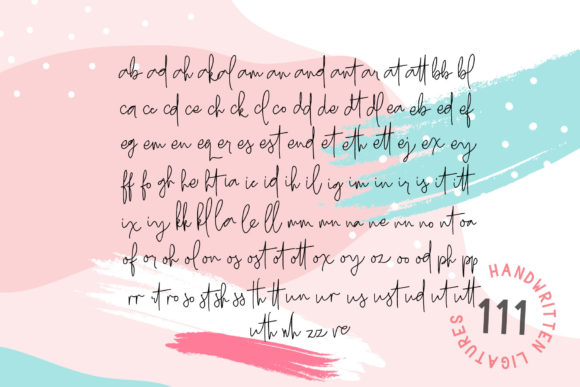 ab ad ah ak al am an and ant ar at att bb bl
ca cc cd ce ch ck cl co dd de dt dl ea eb ed ef
eg em en eq er es est end et eth ett ej ex ey
ff fo gh he ht ia ic id ih il ig im in ir is it itt
ix iy kk kl la le ll mm mn na ne nn no nt oa
of or oh ol on os ost ot ott ox oy oz oo od ph pp
rr rt ro so st sh ss th tt un ur us ust ud ut utt
uth wh zz re
HANDWRITTEN LIGATURES
111